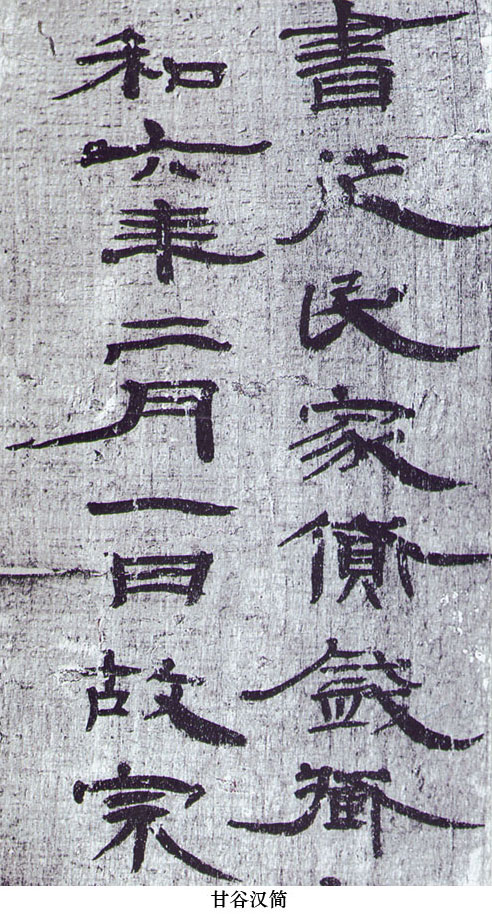 書從民家貸錢
和六年二月一日故宗
甘谷汉简